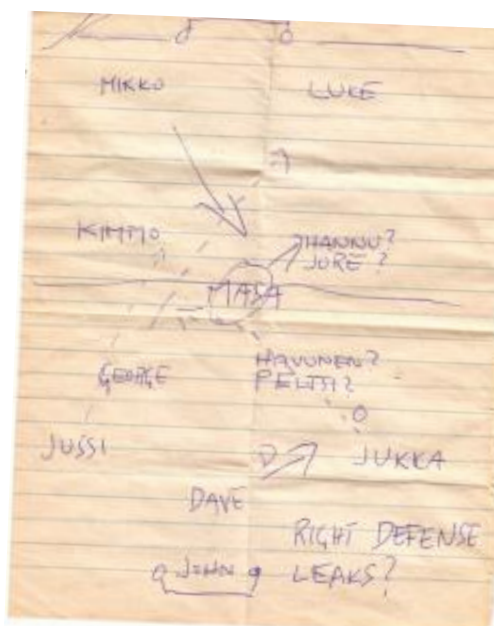 MIKKO LUKE
KIMMO
HANNU?
JURE?
MASA
GEORGE
HAVUNEN?
PELTSI?
JUSSI
JUKKA
DAVE
RIGHT DEFENSE
JOHN LEAKS?